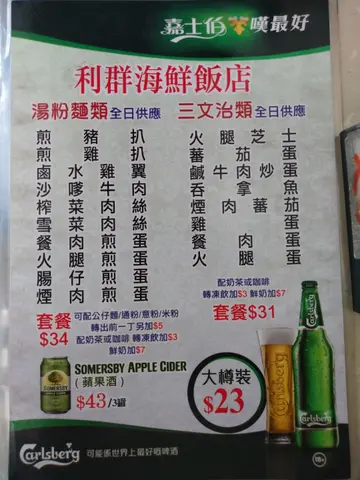 嘉士伯 嘆最好
利群海鮮飯店
湯粉麵類 全日供應
煎豬扒
煎雞扒
鹵水雞翼
沙嗲牛肉
榨菜肉絲
雪菜肉絲
餐肉煎蛋
火腿煎蛋
腸仔煎蛋
煙肉煎蛋
套餐 $34
可配公仔麵/通粉/意粉/米粉
轉出前一丁另加$5
配奶茶或咖啡 轉凍飲加$3
鮮奶加$7
三文治類 全日供應
火腿芝士
蕃茄蛋
鹹牛肉炒蛋
吞拿魚
煙肉蕃茄
雞蛋
餐肉蛋
火腿蛋
配奶茶或咖啡
轉凍飲加$3 鮮奶加$7
套餐$31
SOMERSBY APPLE CIDER
(蘋果酒)
$43/3罐
SOMERSBY
大樽裝
$23
Carlsberg
Carlsberg
Carlsberg
可能係世界上最好嘅啤酒
18+